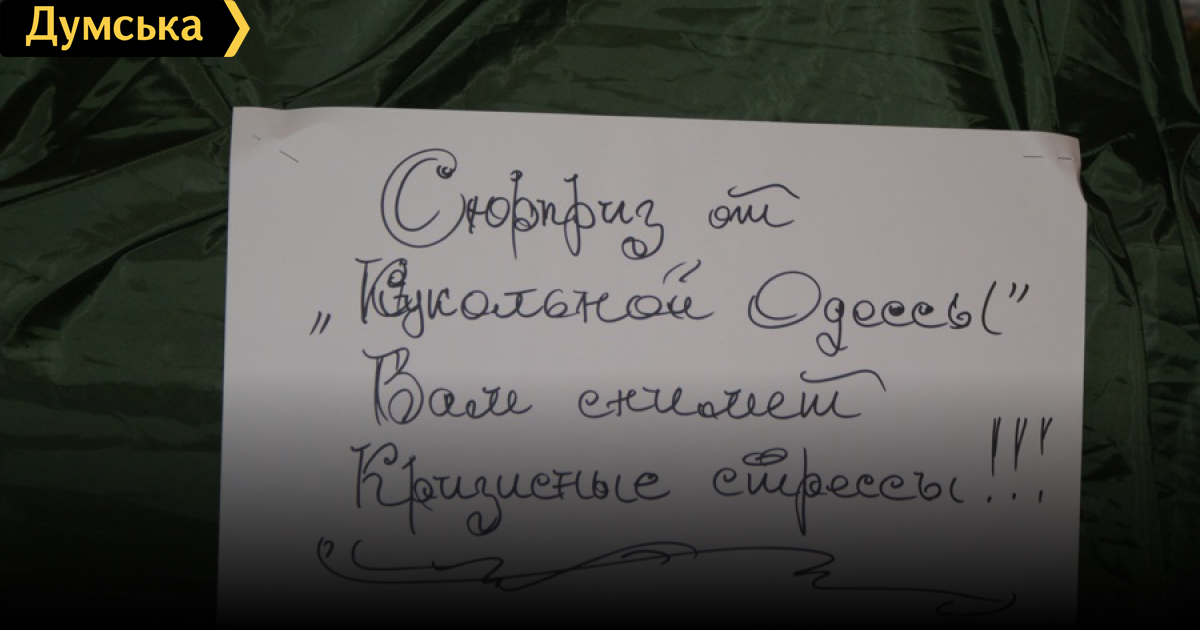 Думська
Сюрприз от
„Кукольной Одессы”
Вам снимет
Кризисные стрессы!!!